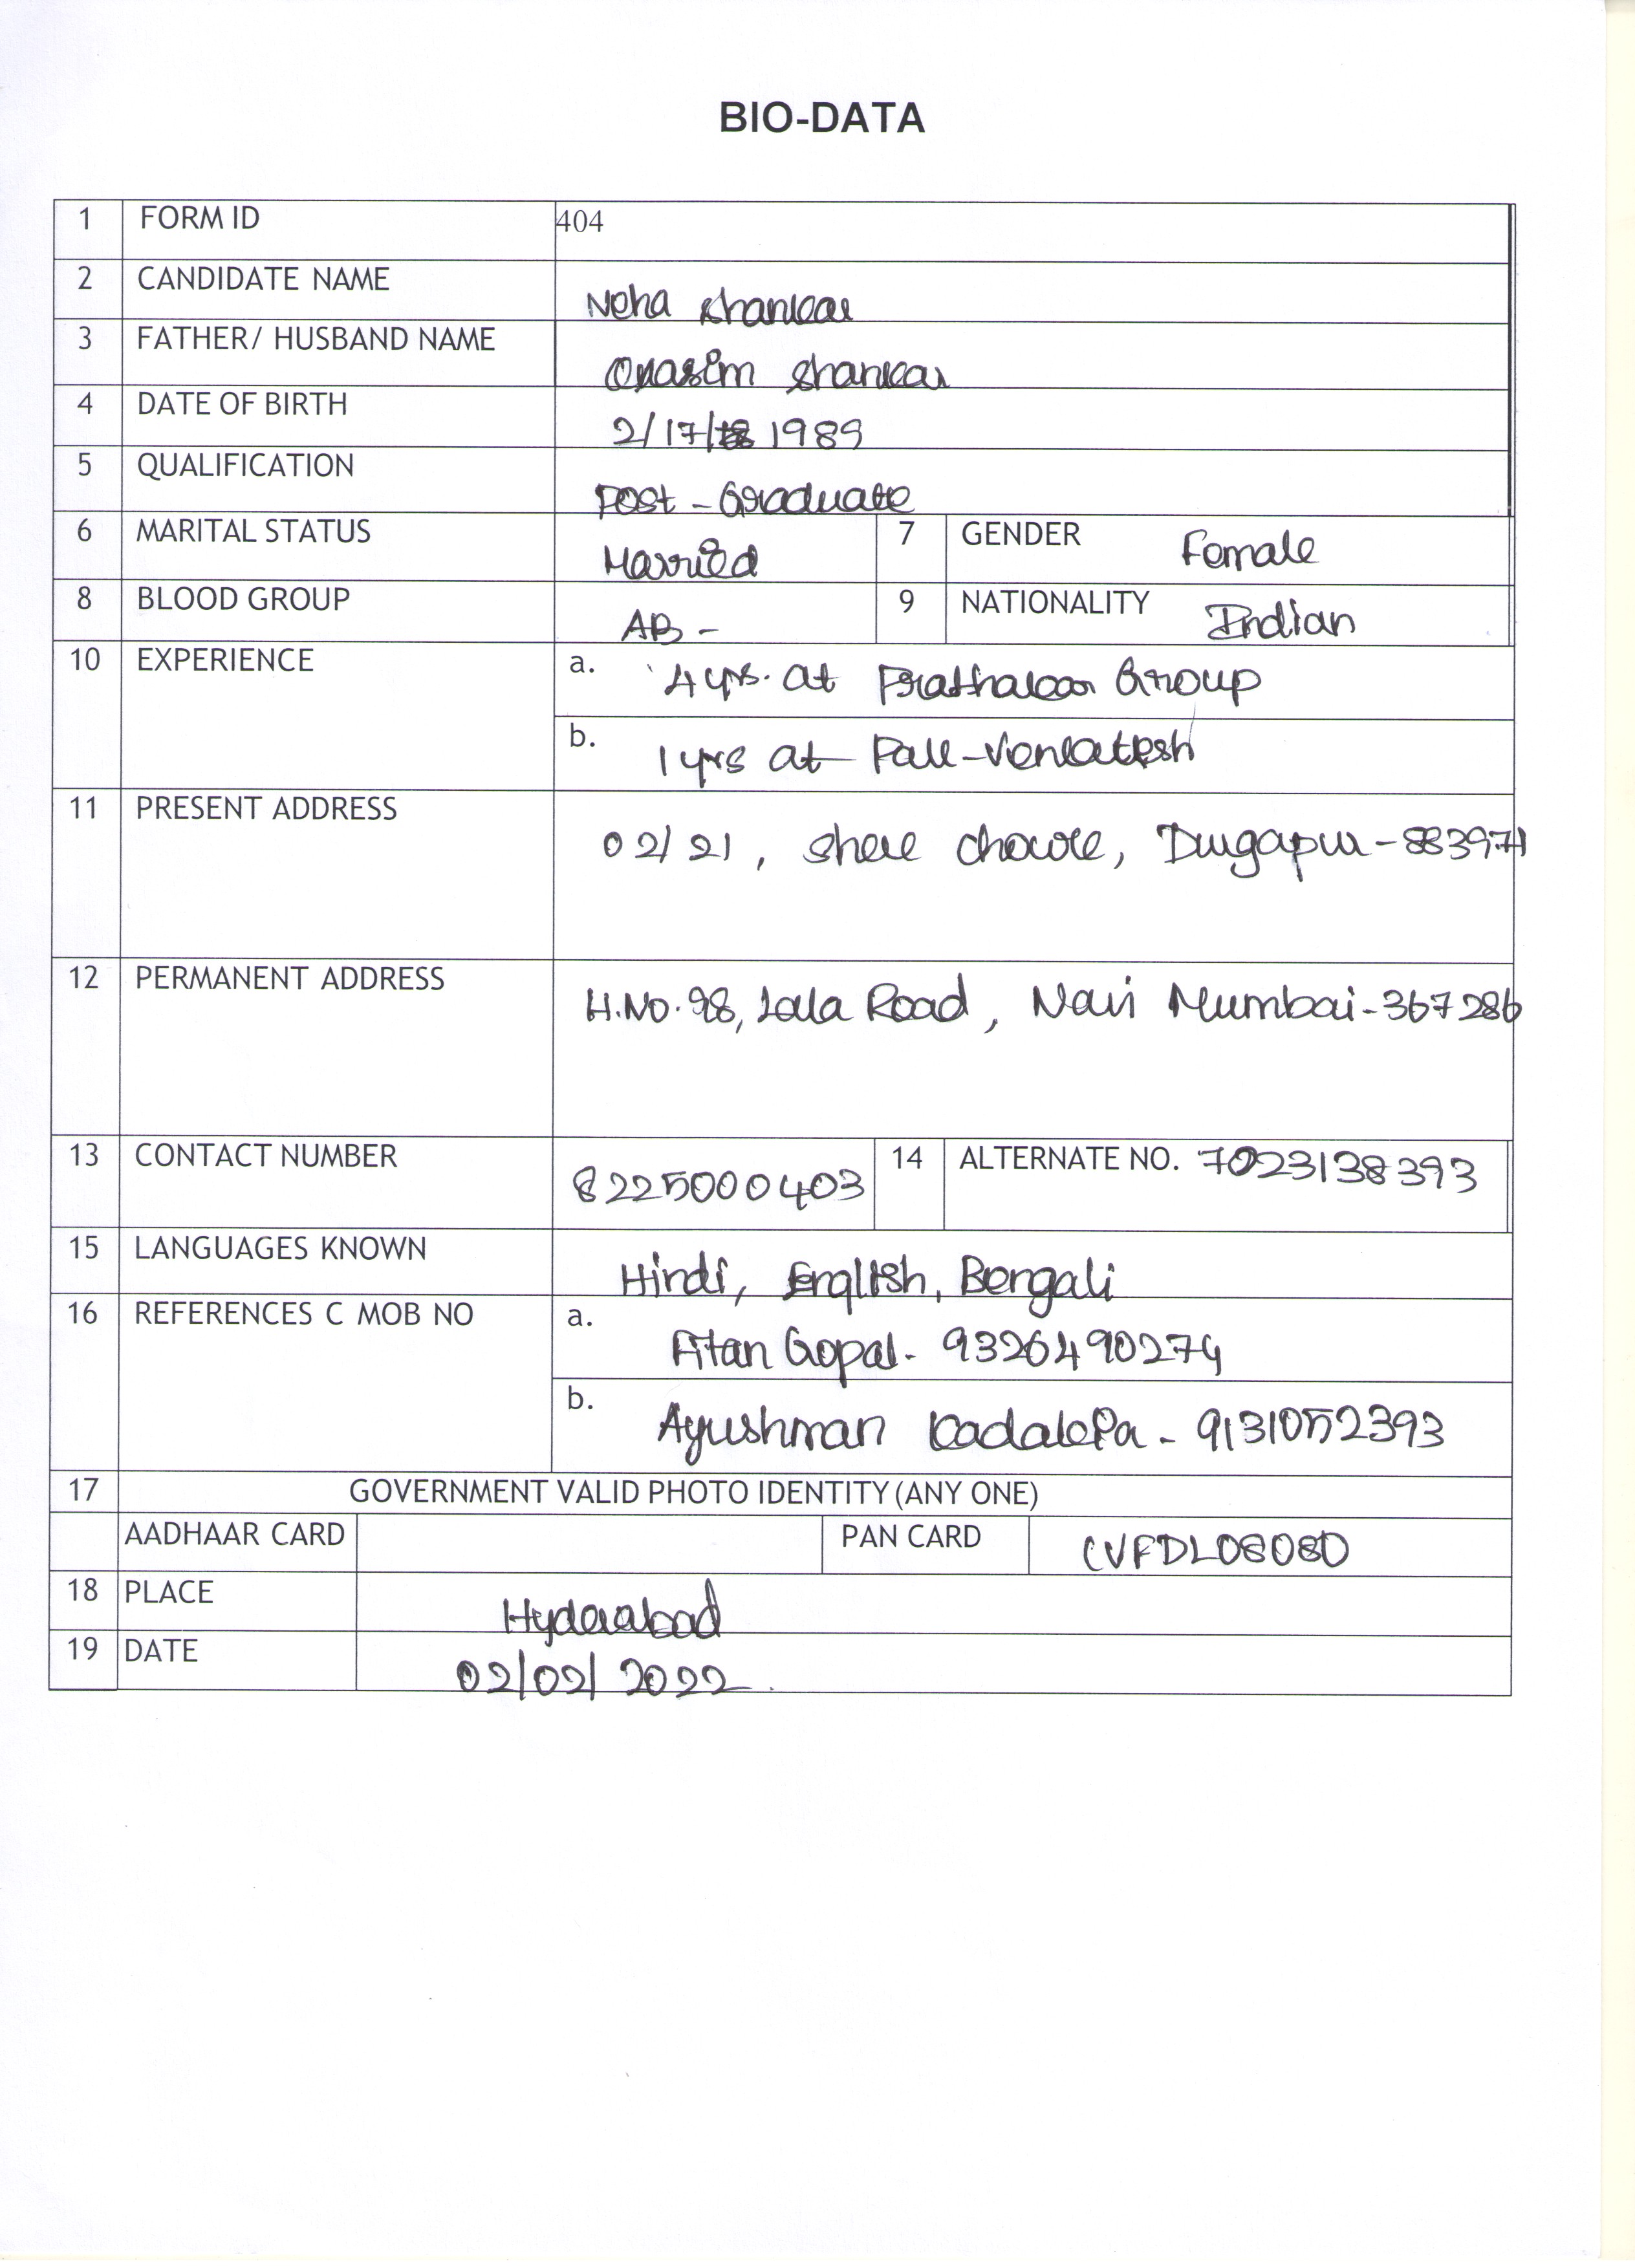 BIO-DATA
1 FORM ID 404
2 CANDIDATE NAME Neha Shankar
3 FATHER/ HUSBAND NAME Shankar
4 DATE OF BIRTH 2/17/ 1989
5 QUALIFICATION Post-Graduate
6 MARITAL STATUS Married 7 GENDER Female
8 BLOOD GROUP AB- 9 NATIONALITY Indian
10 EXPERIENCE a. 4yrs. at Group
b. 1yrs at
11 PRESENT ADDRESS 02/21, Durgapur-883971
12 PERMANENT ADDRESS H.NO.98, Lala Road, Navi Mumbai-367286
13 CONTACT NUMBER 8225000403 14 ALTERNATE NO. 7023138393
15 LANGUAGES KNOWN Hindi, English, Bengali
16 REFERENCES C MOB NO a. Gopal- 9326490274
b. Ayushman - 9131052393
17 GOVERNMENT VALID PHOTO IDENTITY (ANY ONE)
AADHAAR CARD PAN CARD CVFDL0808D
18 PLACE Hyderabad
19 DATE 02/02/2022